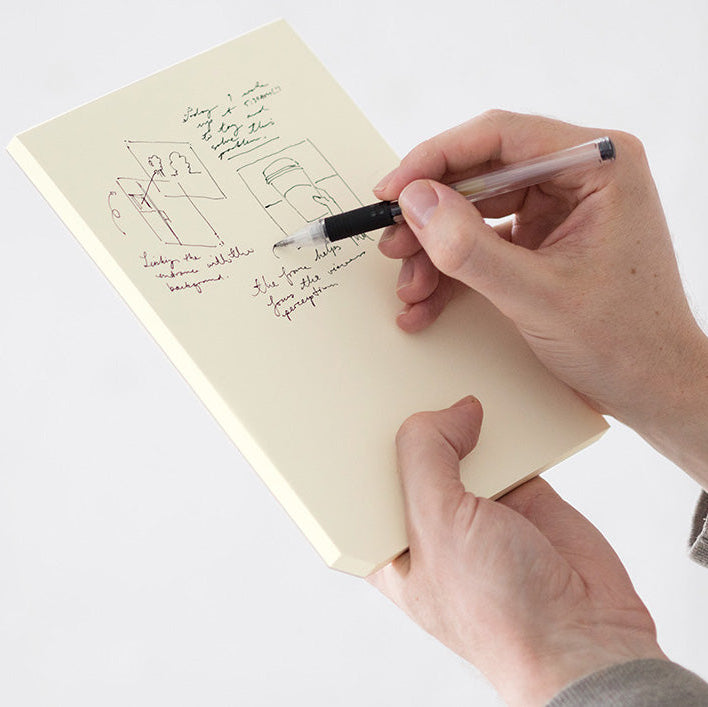 Today I woke
up at 5:30AM
to try and
solve this
problem.
Linking the
entrance with the
background.
the frame helps the
focus the viewers
perception